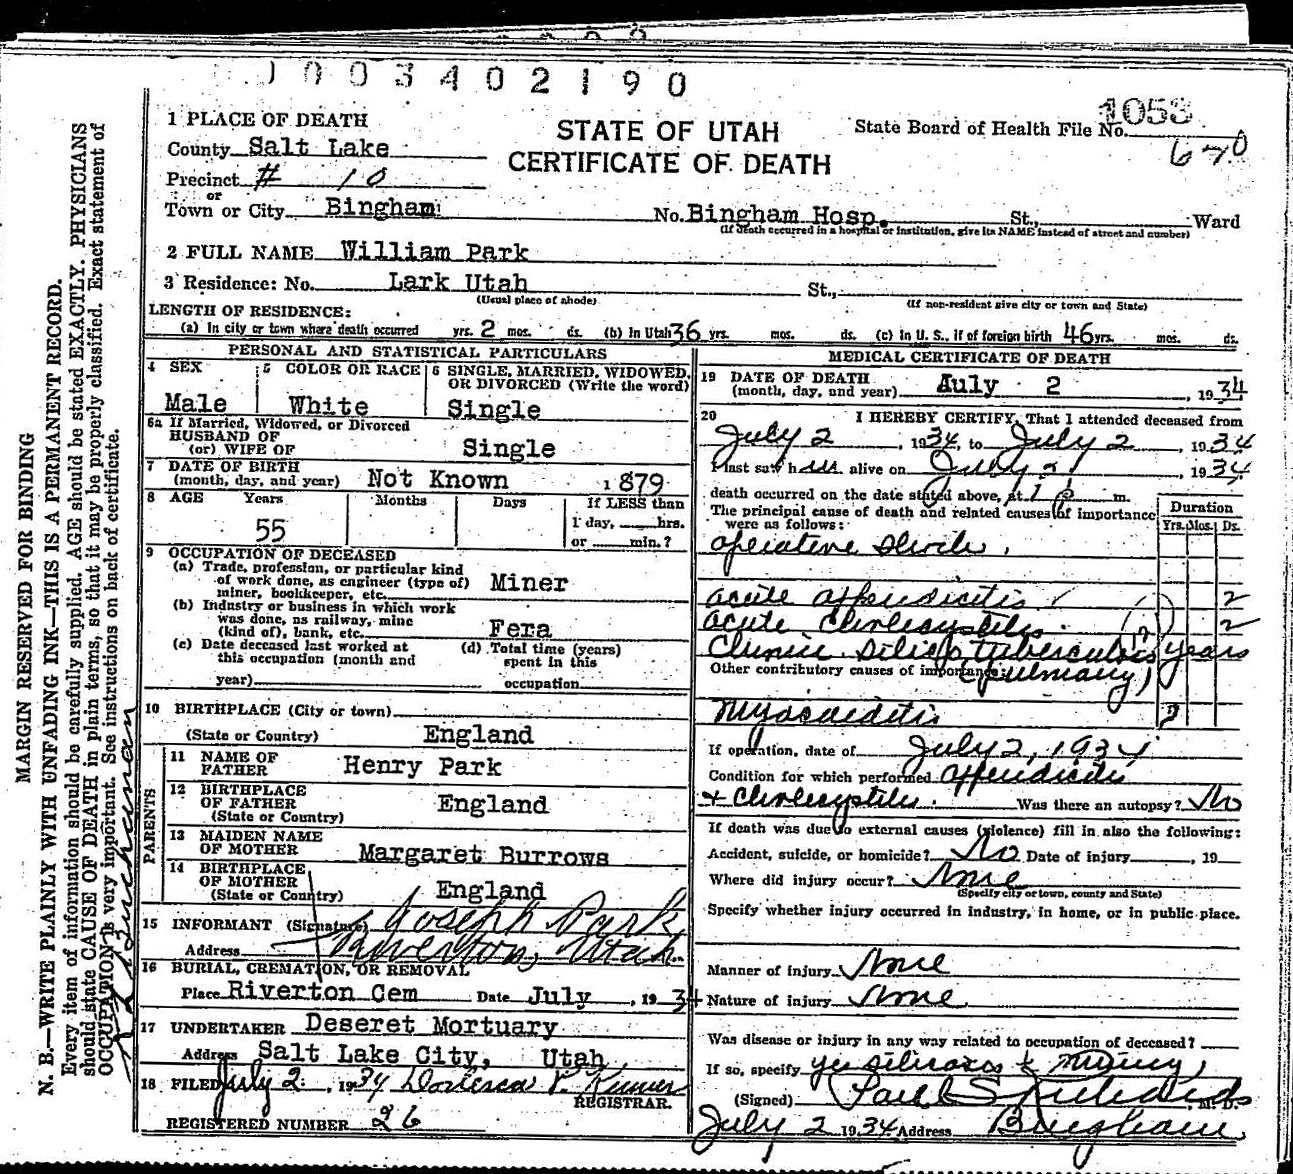 1003402190
1053
670
STATE OF UTAH
CERTIFICATE OF DEATH
State Board of Health File No.
1 PLACE OF DEATH
County Salt Lake
Precinct # 10
or
Town or City Bingham No. Bingham Hosp. St., Ward
(If death occurred in a hospital or institution, give its NAME instead of street and number)
2 FULL NAME William Park
3 Residence: No. Lark Utah St.,
(Usual place of abode) (If non-resident give city or town and State)
LENGTH OF RESIDENCE:
(a) In city or town where death occurred yrs. 2 mos. ds. (b) In Utah 36 yrs. mos. ds. (c) In U. S., if of foreign birth 46 yrs. mos. ds.
PERSONAL AND STATISTICAL PARTICULARS
4 SEX Male
5 COLOR OR RACE White
6 SINGLE, MARRIED, WIDOWED, OR DIVORCED (Write the word) Single
6a If Married, Widowed, or Divorced
HUSBAND OF
(or) WIFE OF Single
7 DATE OF BIRTH
(month, day, and year) Not Known 1879
8 AGE Years Months Days If LESS than
55 1 day, hrs.
or min.?
9 OCCUPATION OF DECEASED
(a) Trade, profession, or particular kind
of work done, as engineer (type of)
miner, bookkeeper, etc. Miner
(b) Industry or business in which work
was done, as railway, mine
(kind of), bank, etc. Fera
(c) Date deceased last worked at
this occupation (month and
year)
(d) Total time (years)
spent in this
occupation
10 BIRTHPLACE (City or town)
(State or Country) England
PARENTS
11 NAME OF
FATHER Henry Park
12 BIRTHPLACE
OF FATHER
(State or Country) England
13 MAIDEN NAME
OF MOTHER Margaret Burrows
14 BIRTHPLACE
OF MOTHER
(State or Country) England
15 INFORMANT (Signature) Joseph Park
Address Riverton, Utah.
16 BURIAL, CREMATION, OR REMOVAL
Place Riverton Cem Date July , 1934
17 UNDERTAKER Deseret Mortuary
Address Salt Lake City, Utah
18 FILED July 2 , 1934
REGISTRAR.
REGISTERED NUMBER 26
MEDICAL CERTIFICATE OF DEATH
19 DATE OF DEATH
(month, day, and year) July 2 , 1934
20 I HEREBY CERTIFY, That I attended deceased from
July 2 , 1934, to July 2 , 1934
I last saw him alive on July 2 , 1934,
death occurred on the date stated above, at 1 p m.
The principal cause of death and related causes of importance
were as follows:
Duration
Yrs. Mos. Ds.
operative shock.
acute appendicitis 2
acute cholecystitis 2
Chronic Silico tuberculosis years
(pulmonary)
Other contributory causes of importance:
Myocarditis ?
If operation, date of July 2, 1934
Condition for which performed appendicitis
& cholecystitis. Was there an autopsy? No
If death was due to external causes (violence) fill in also the following:
Accident, suicide, or homicide? No Date of injury , 19
Where did injury occur? None
(Specify city or town, county and State)
Specify whether injury occurred in industry, in home, or in public place.
Manner of injury None
Nature of injury None
Was disease or injury in any way related to occupation of deceased?
If so, specify yes silicosis & mining
(Signed) Paul S Richards , M. D.
July 2 1934 Address Bingham
MARGIN RESERVED FOR BINDING
N. B.—WRITE PLAINLY WITH UNFADING INK—THIS IS A PERMANENT RECORD.
Every item of information should be carefully supplied. AGE should be stated EXACTLY. PHYSICIANS
should state CAUSE OF DEATH in plain terms, so that it may be properly classified. Exact statement of
OCCUPATION is very important. See instructions on back of certificate.